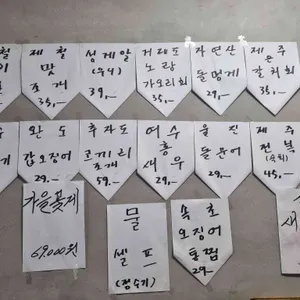 제철
맛
조개
35,—
성게알
(우니)
39,—
거제도
노랑
가오리회
35,—
자연산
돌멍게
29,—
제주
갈치회
35,—
완도
갑오징어
29,—
추자도
코끼리
조개
59,—
여수
홍
새우
29,—
울진
돌문어
29,—
제주
전복
(숙회)
45,—
가을꽃게
69,000원
물
셀프
(정수기)
속초
오징어
통찜
29—
새